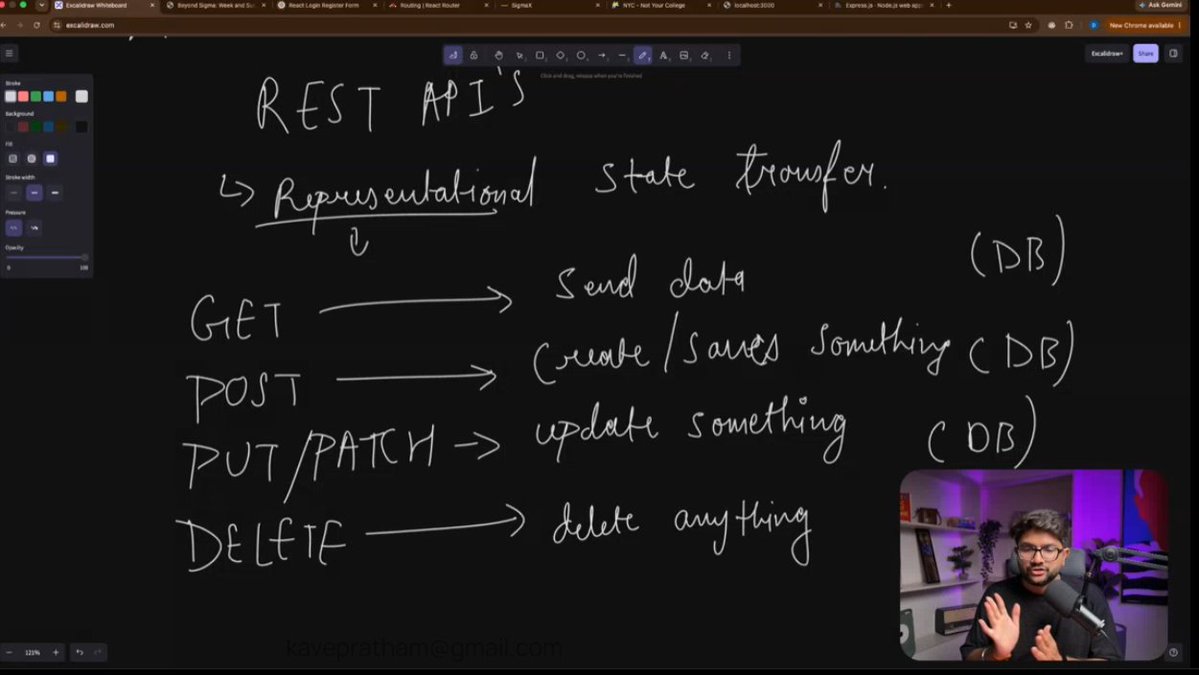 Excalidraw Whiteboard
Beyond Sigma: Week and Su
React Login Register Form
Routing | React Router
SigmaX
NYC - Not Your College
localhost:3000
Express.js - Node.js web app
Ask Gemini
excalidraw.com
New Chrome available
Excalidraw+
Share
Click and drag, release when you're finished
Stroke
Background
Fill
Stroke width
Pressure
Opacity
0 100
REST API's
↳ Representational state transfer.
GET → send data (DB)
POST → create/saves something (DB)
PUT/PATCH → update something (DB)
DELETE → delete anything
kavepratham@gmail.com
− 121% +